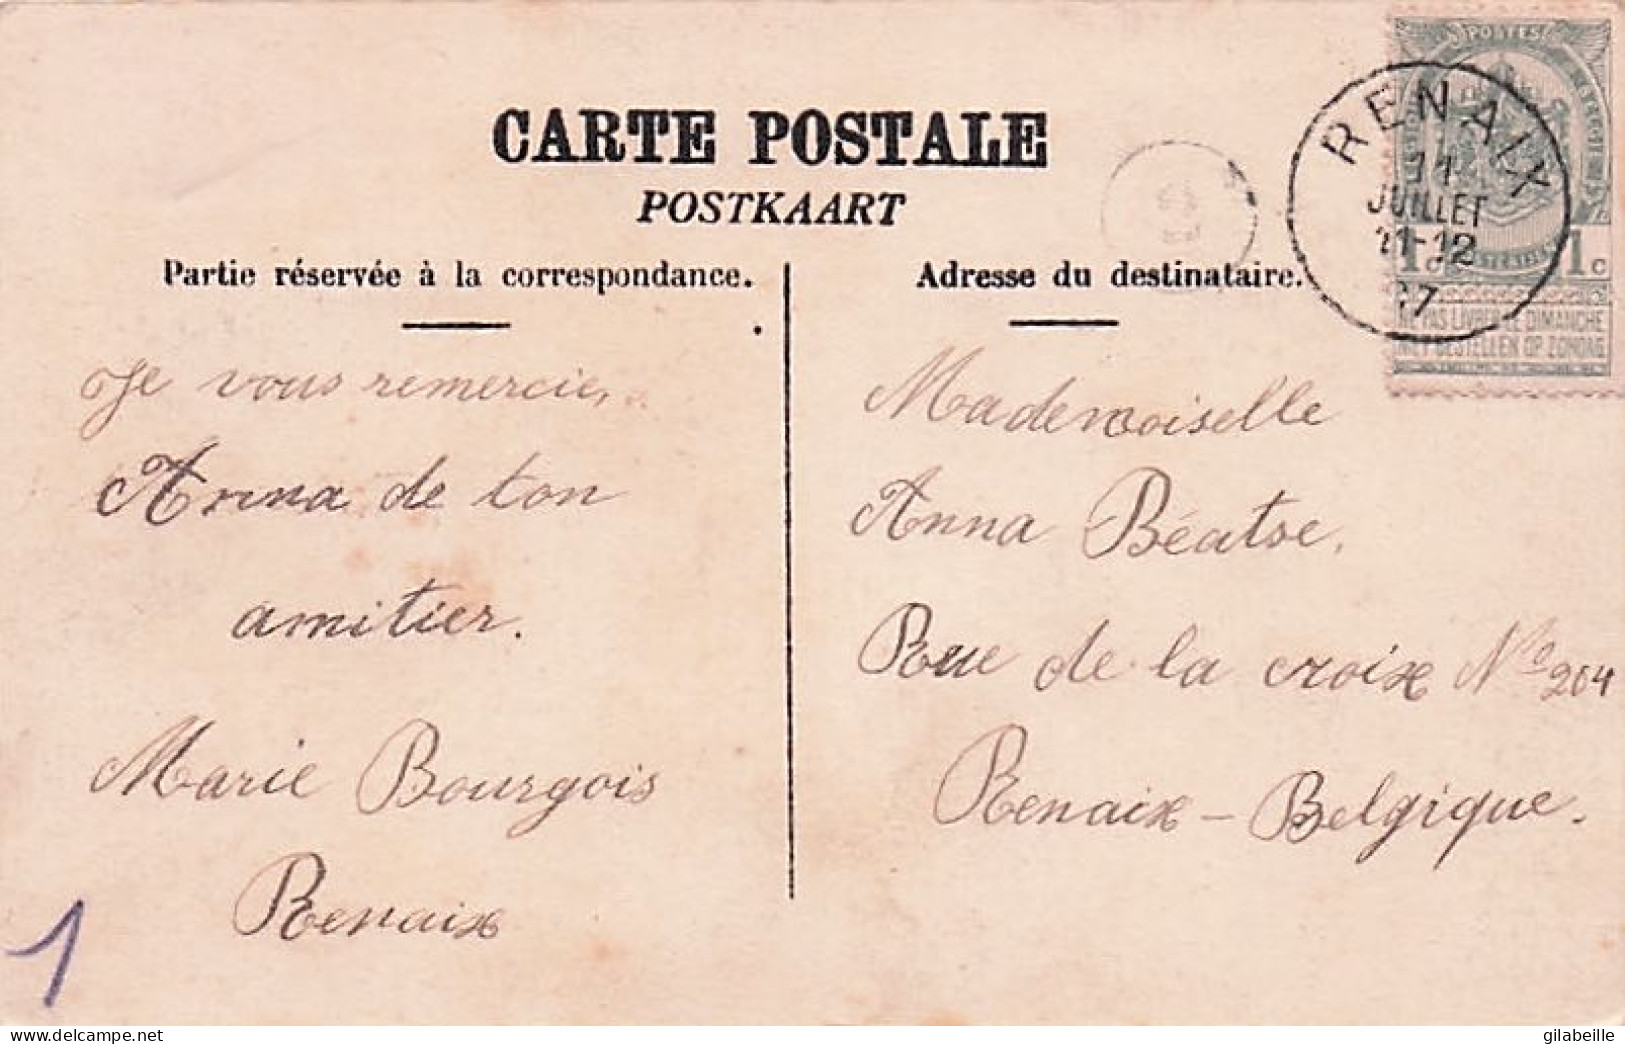 CARTE POSTALE
POSTKAART
Partie réservée à la correspondance.
Je vous remercie,
Anna de ton
amitier.
Marie Bourgois
Renaix
1
Adresse du destinataire.
Mademoiselle
Anna Béatse,
Rue de la croix No 204
Renaix - Belgique.
POSTES
1c 1c
NE PAS LIVRER LE DIMANCHE
NIET BESTELLEN OP ZONDAG
RENAIX
11
JUILLET
11-12
7
delcampe.net
gilabeille